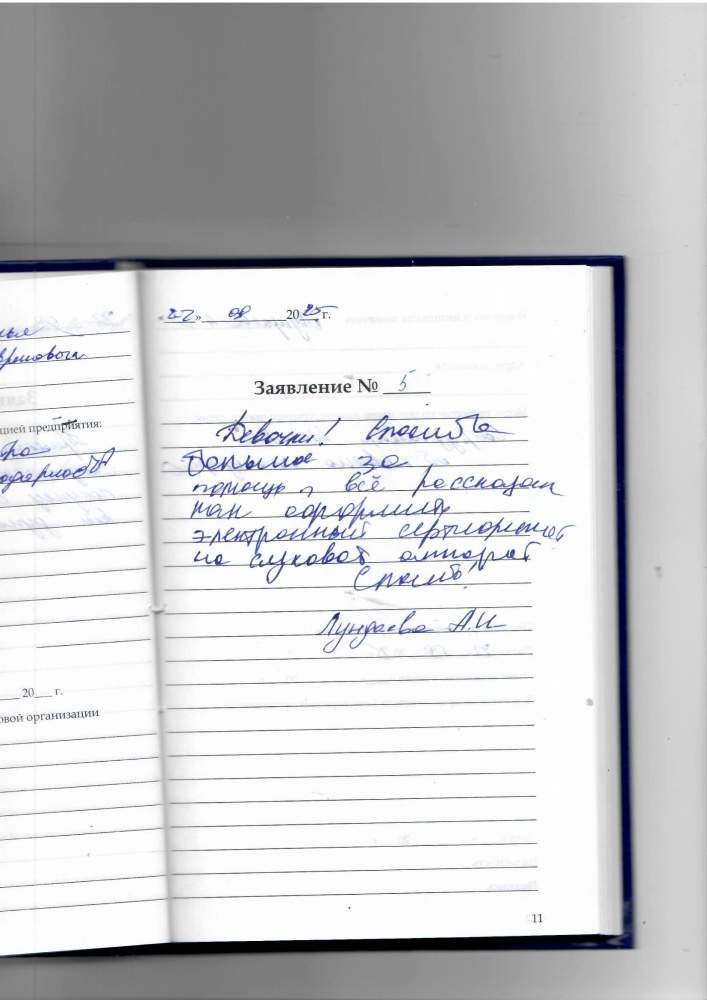 цией предприятия:
20___ г.
овой организации
«22» 08 2025 г.
Заявление № 5
Девочки! Спасибо
большое за
помощь, всё рассказали
как оформить
электронный сертификат
на слуховой аппарат
Спасибо!
А.И
11